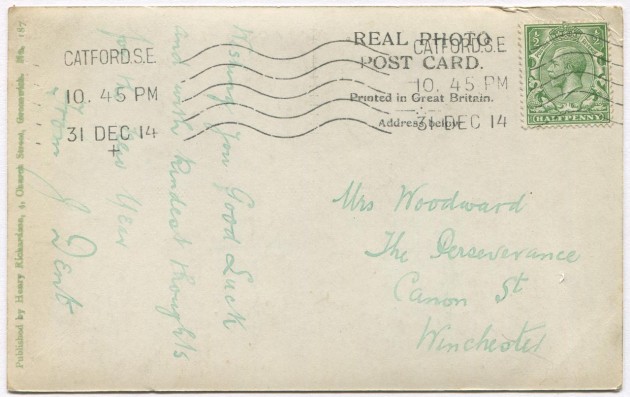 CATFORD.S.E.
10. 45 PM
31 DEC 14
REAL PHOTO
POST CARD.
Printed in Great Britain.
Address below
CATFORD.S.E
10. 45 PM
31 DEC 14
HALFPENNY
Wishing you Good Luck
and with kindest thoughts
for the New Year
from J Dent
Mrs Woodward
The Perseverance
Canon St
Winchester
Published by Henry Richardson, 4, Church Street, Greenwich. No. 187